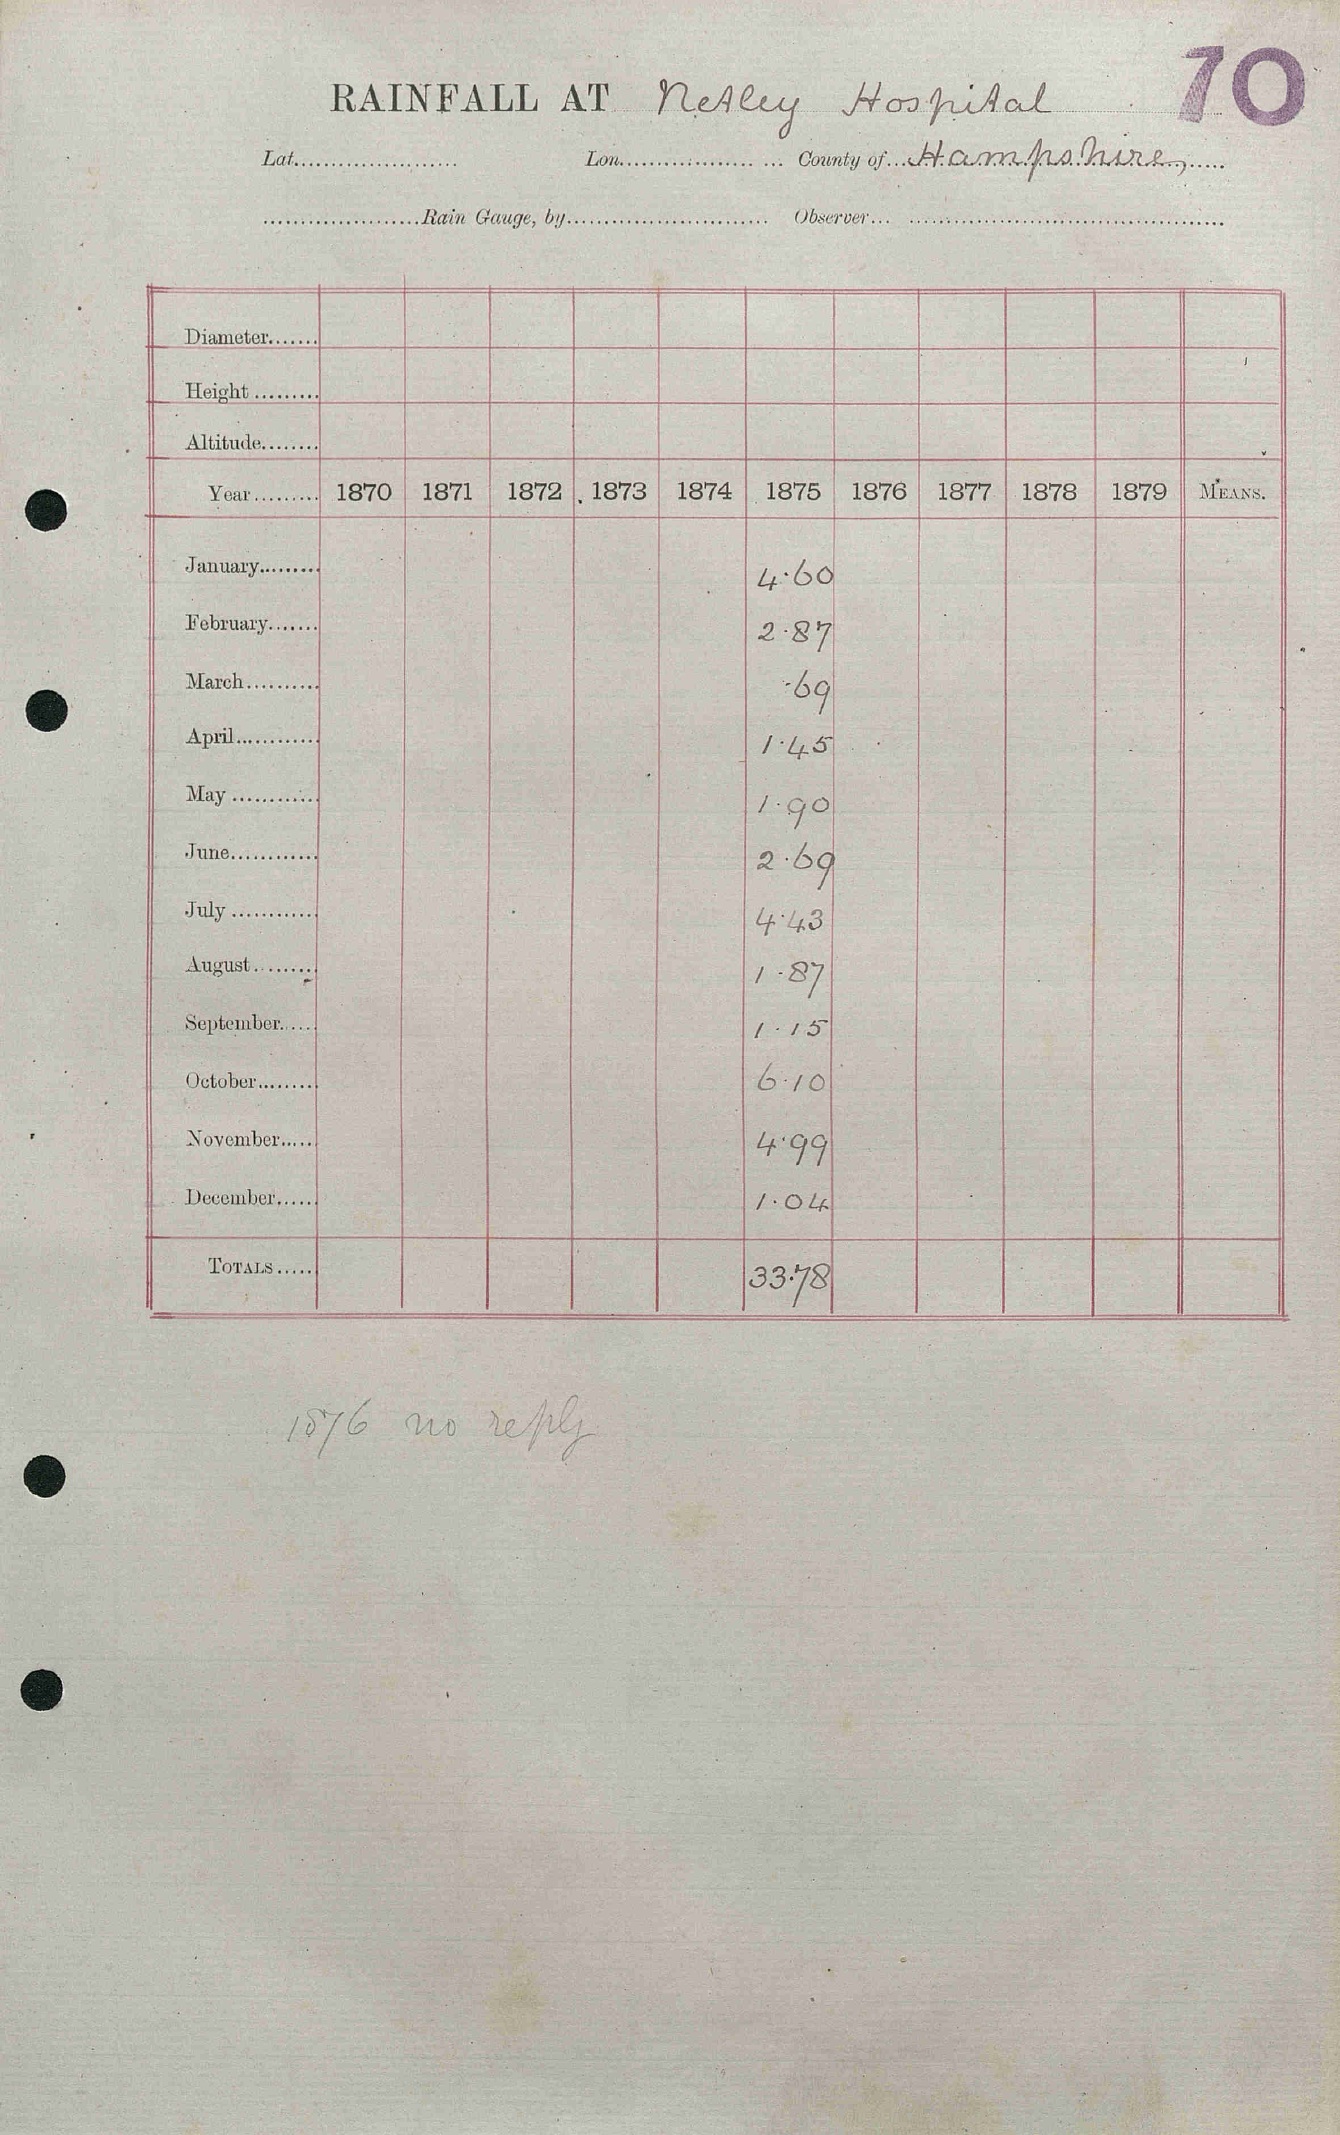 70
RAINFALL AT Netley Hospital
Lat. Lon. County of Hampshire,
Rain Gauge, by Observer
Diameter
Height
Altitude
Year 1870 1871 1872 1873 1874 1875 1876 1877 1878 1879 MEANS.
January 4.60
February 2.87
March .69
April 1.45
May 1.90
June 2.69
July 4.43
August 1.87
September 1.15
October 6.10
November 4.99
December 1.04
TOTALS 33.78
1876 no reply